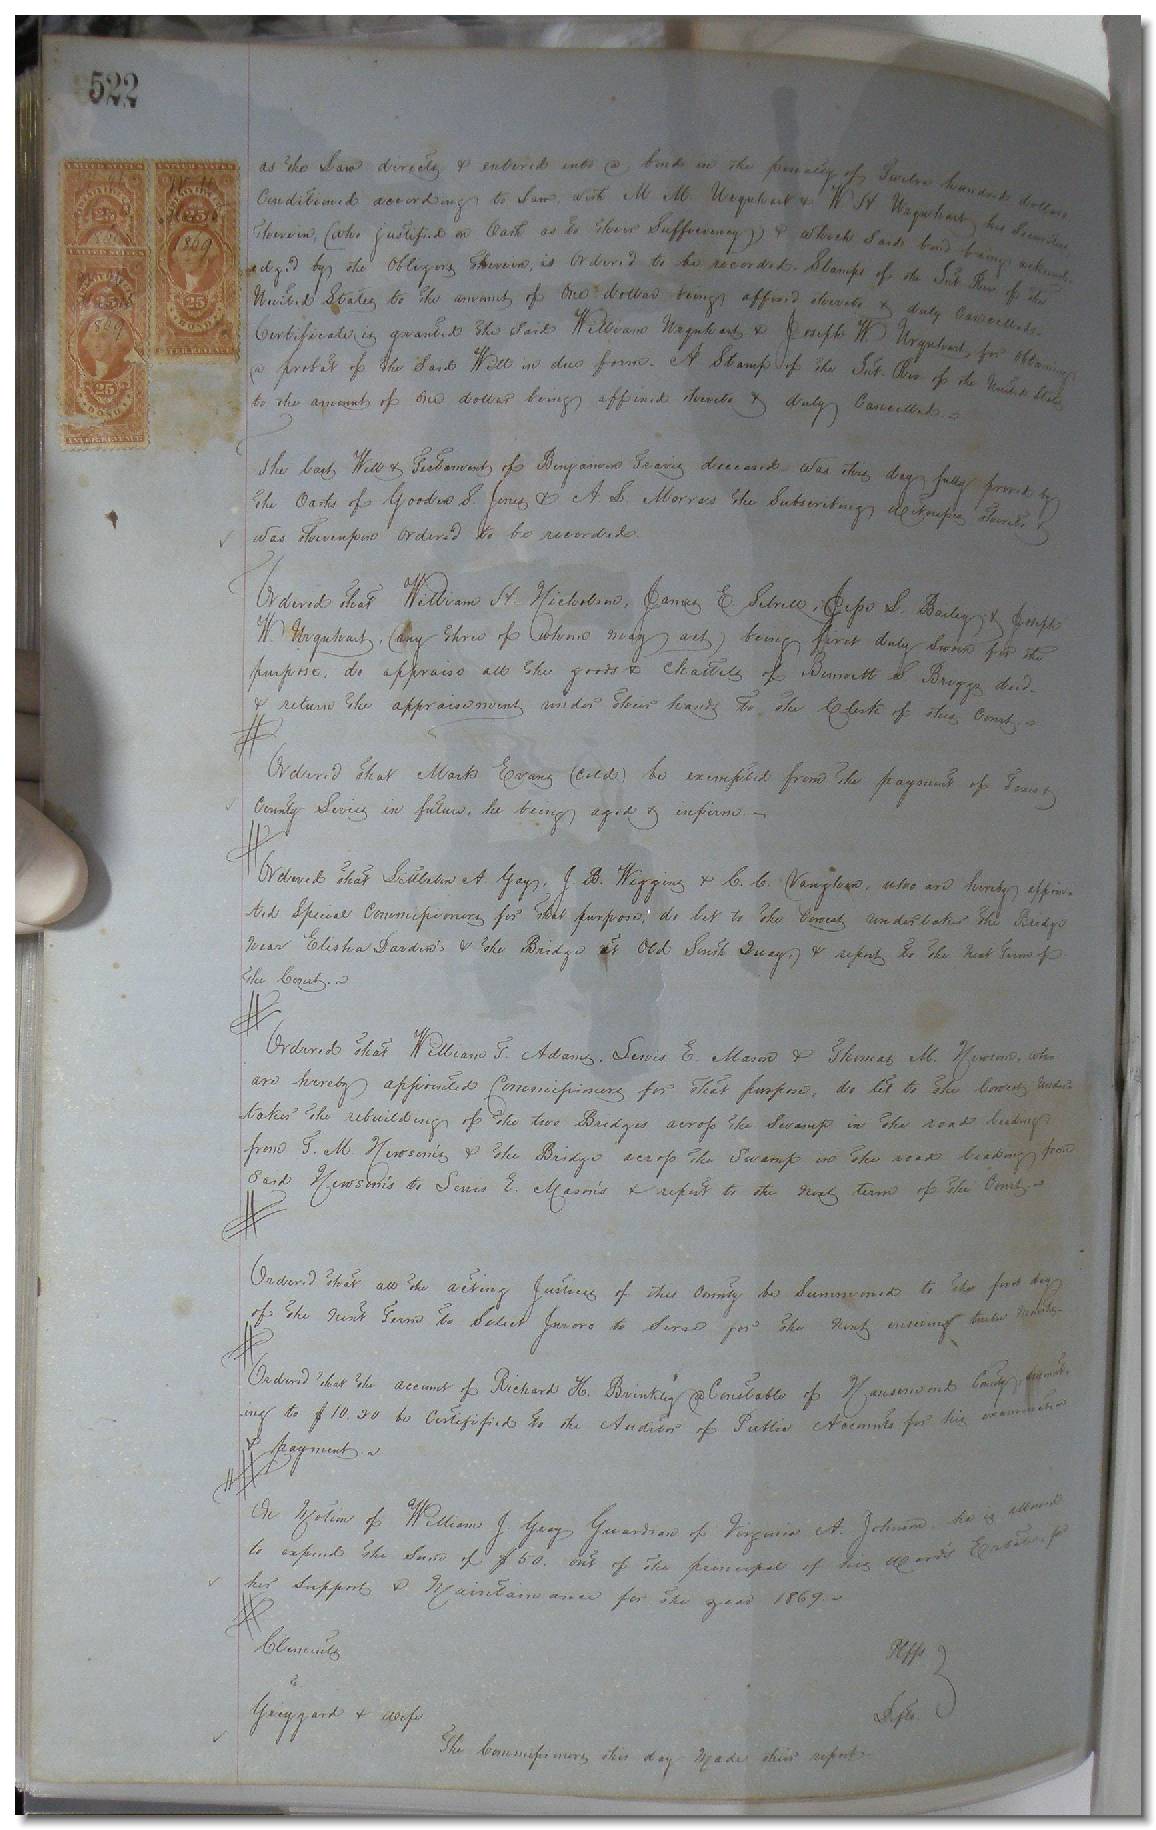 522
as the Law directs & entered into a bond in the penalty of Twelve hundred dollars
Conditioned according to Law, with M. M. Urquhart & W H Urquhart, his Securities
therein, (who justified on Oath as to their Sufficiency) & which said bond being acknowl-
edged by the Obligors therein, is Ordered to be recorded. Stamps of the Int. Rev. of the
United States to the amount of One dollar being affixed thereto & duly Cancelled.
Certificate is granted the said William Urquhart & Joseph W Urquhart, for obtaining
a probat of the Said Will in due form. A Stamp of the Int. Rev of the United States
to the amount of One dollar being affixed thereto & duly Cancelled.
The last Will & Testament of Benjamin Travis deceased was this day fully proved by
the Oaths of Goodin S Jones & A. L. Morris the Subscribing Witnesses thereto &
was thereupon Ordered to be recorded.
Ordered that William H. Nicholson, James E. Sebrell, Jesse L. Bailey, & Joseph
W. Urquhart, (any three of whom may act,) being first duly Sworn for the
purpose, do appraise all the goods & Chattels of Bennett S Briggs decd.
& return the appraisement under their hands to the Clerk of this Court.
Ordered that Mark Evans (Cold) be exempted from the payment of Taxes &
County Levies in future, he being aged & infirm
Ordered that Littleton A Gay, J. B. Wiggins & C. C. Vaughan, who are hereby appoin-
ted Special Commissioners for that purpose, do let to the lowest undertaker the Bridge
near Elisha Darden's & the Bridge at Old South Quay, & report to the next Term of
the Court.
Ordered that William T. Adams, Lewis E. Mason & Thomas M. Newsom, who
are hereby appointed Commissioners for that purpose, do let to the lowest under-
taker the rebuilding of the two Bridges across the Swamp in the road leading
from T. M. Newsom's & the Bridge across the Swamp in the road leading from
Said Newsom's to Lewis E. Mason's & report to the next term of the Court.
Ordered that all the acting Justices of this County be Summoned to the first day
of the next Term to Select Jurors to Serve for the next ensuing twelve months.
Ordered that the account of Richard H. Brinkley a Constable of Nansemond County, amount-
ing to $10.20 be Certified to the Auditor of Public Accounts for his examination
& payment.
On Motion of William J. Gray Guardian of Virginia A. Johnson, he is allowed
to expend the Sum of $50. out of the principal of his ward's Estate, for
her Support & Maintainance for the year 1869.
Clements Plffs
Griggard & wife Defts.
The Commissioners this day made their report
UNITED STATES
25
1869
25
BOND
INTER. REVENUE